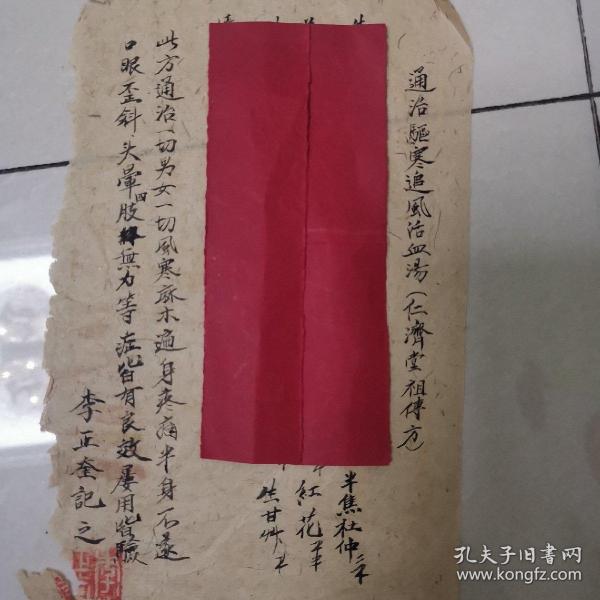 通治驅寒追風活血湯(仁濟堂祖傳方)
半焦杜仲三
紅花
生甘艸
此方通治一切男女一切風寒麻木遍身疼痛半身不遂
口眼歪斜頭暈四肢無力等症皆有良效屡用皆驗
李正奎記之
孔夫子旧书网
www.kongfz.com